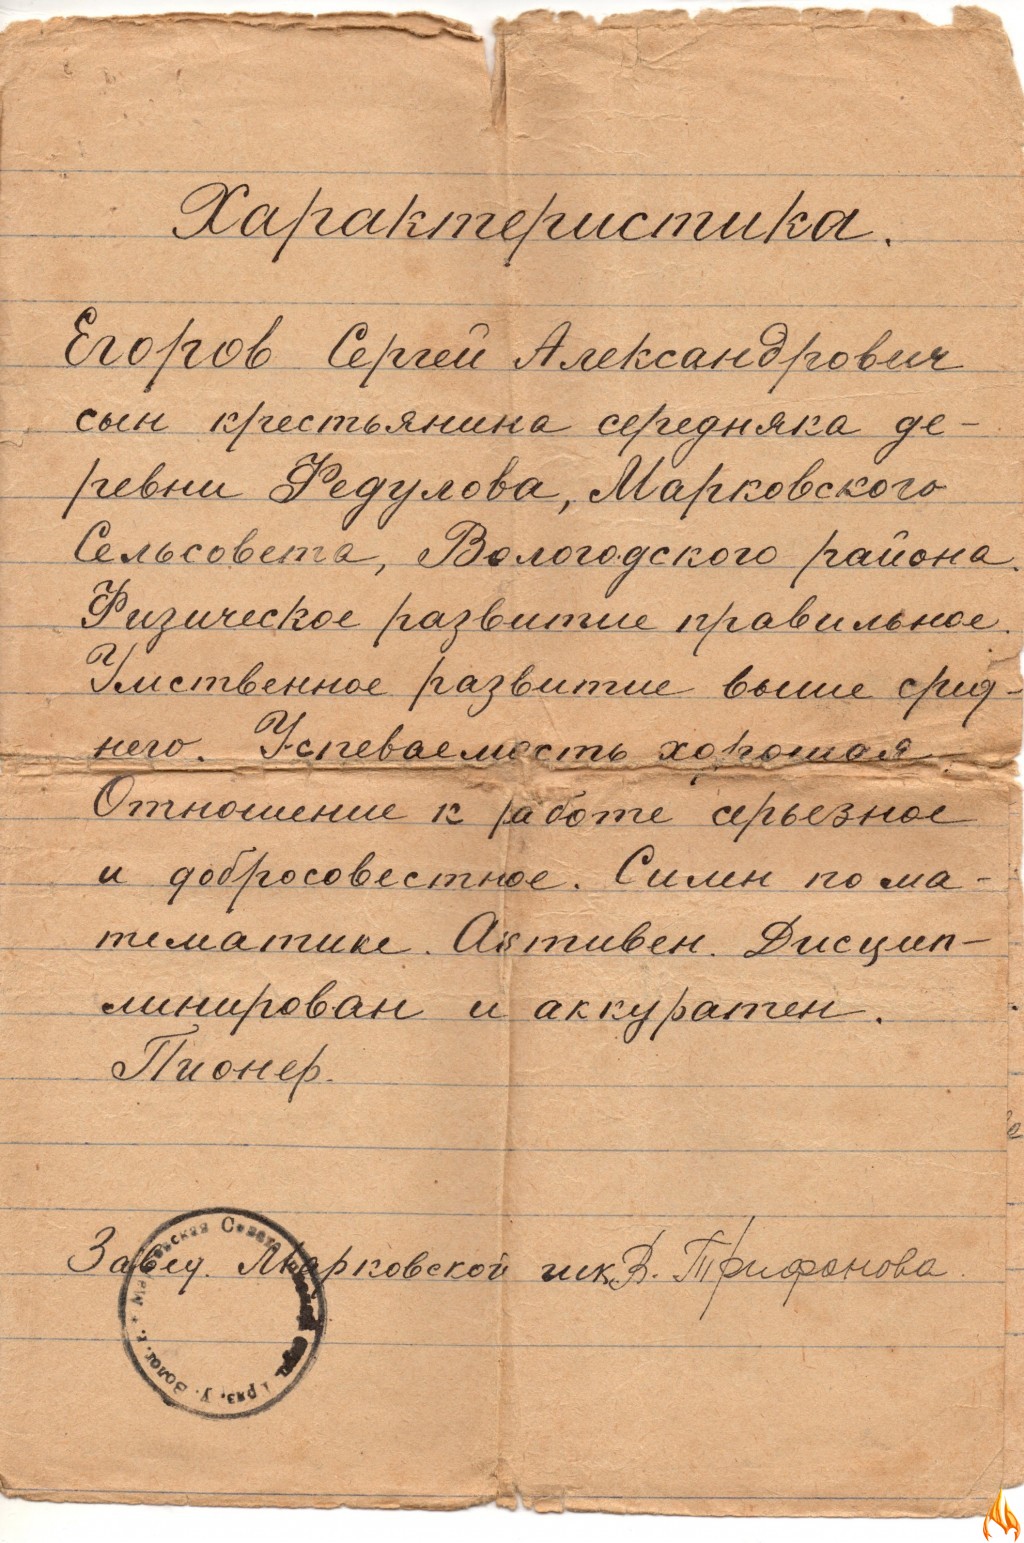 Характеристика.
Егоров Сергей Александрович
сын крестьянина середняка де-
ревни Федулова, Марковского
Сельсовета, Вологодского района.
Физическое развитие правильное.
Умственное развитие выше сред-
него. Успеваемость хорошая
Отношение к работе серьезное
и добросовестное. Силен по ма-
тематике. Активен. Дисцип-
линирован и аккуратен.
Пионер.
Завед. Марковской шк. В. Трифонова.